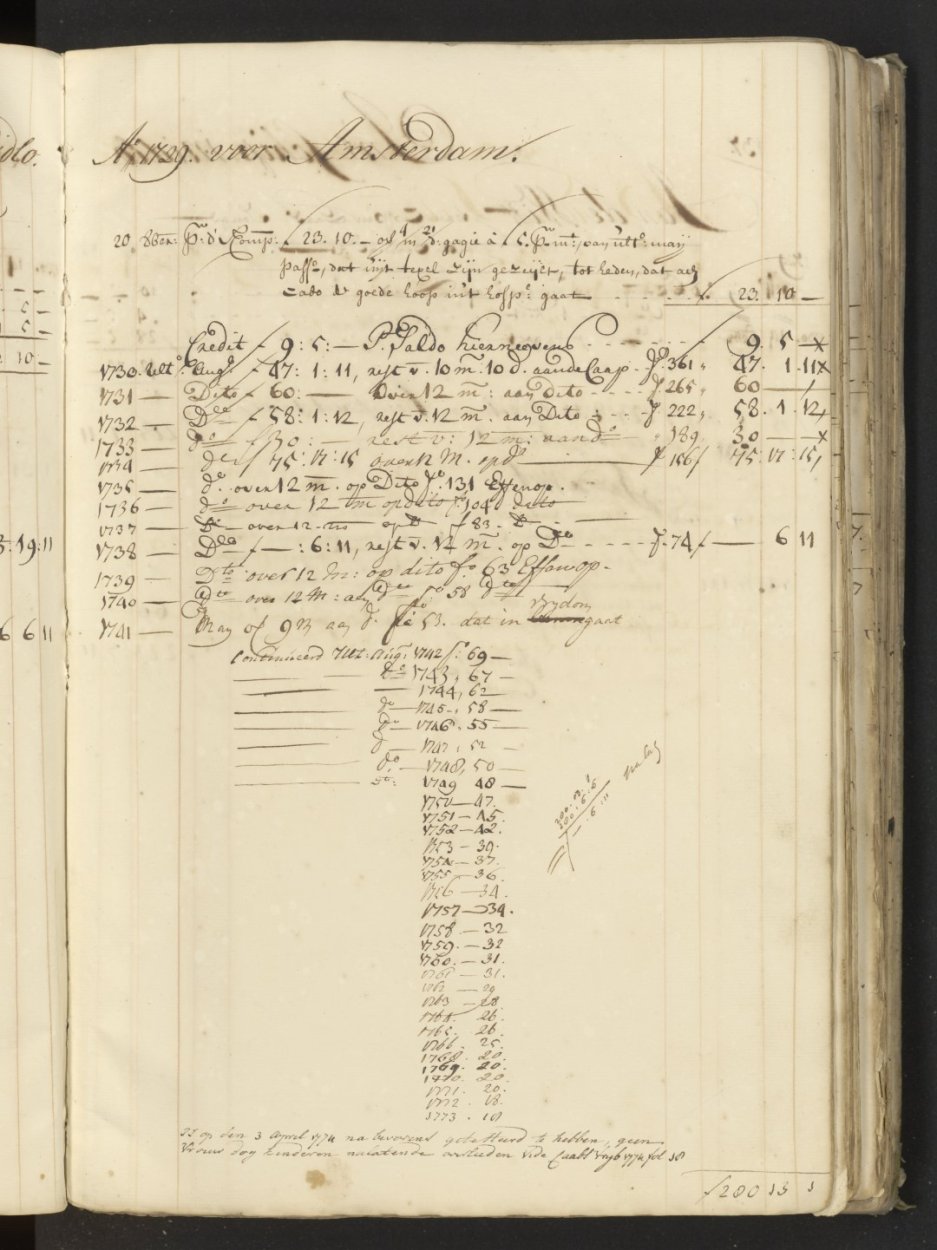 A° 1729. voor Amsterdam.
20 8ber: Pr. d' Comp: ƒ 23. 10. – op 4 m 21 d: gagie à ƒ 5. Pr. mt: van ult° maij
pass°, dat uijt texel zijn gezeijlt, tot heden, dat aen
Cabo de goede hoop in't hosp: gaat ƒ 23. 10 —
Credit ƒ 9: 5: — Pr. Saldo hierneevens 9. 5 —
1730. Ult° Aug: ƒ 47: 1: 11, rest v. 10 m. 10 d. aan de Caap f° 361, 47. 1. 11
1731 — Dito ƒ 60: — over 12 m: aan Dito f° 265, 60 —
1732 — D° ƒ 58: 1: 12, rest v. 12 m. aan Dito f 222, 58. 1. 12,
1733 — d° ƒ 30: — rest v: 12 m: aan d° 189 30 —
1734 — d° ƒ 75: 17: 15 over 12 M. op d° f 156 ƒ 75: 17: 15,
1735 — d°. over 12 m. op Dito f° 131 Effenop.
1736 — d° over 12 m op dito f° 104 dito
1737 — D° over 12 m op D° f 83. D°
1738 — D° ƒ — : 6: 11, rest v. 12 m. op D° f. 74 ƒ — 6 11
1739 — Dto over 12 m: op dito f° 63 Effenop.
1740 — Dto over 12 M: aan Do f° 58 dto
1741 — May op 9 m aan d° f° 53. dat in vrydom gaat
Continueerd Ult: Aug: 1742 f° 69 —
d° 1743, 67 —
— 1744, 62 —
d° 1745, 58 —
d° 1746. 55 —
d — 1747, 52 —
d° — 1748, 50 —
Dto: 1749 48 —
1750 — 47.
1751 — 45.
1752 — 42.
1753 — 39.
1754 — 37.
1755 — 36.
1756 — 34.
1757 — 34.
1758 — 32
1759. — 32
1760. — 31.
1761 — 31.
1762 — 29
1763 — 28
1764. 26.
1765. 26.
1766. 25.
1768. 20.
1769. 20.
1770. 20
1771. 20.
1772. 18.
1773. 18
200. 13. 1
200. 6. 6
— . 6. 11
Is op den 3 April 1774 na bevorens getesteerd te hebben, geen
Vrouw dog kinderen nalatende overleeden Vide Caabs 1774 fol 18
ƒ 280 13 1